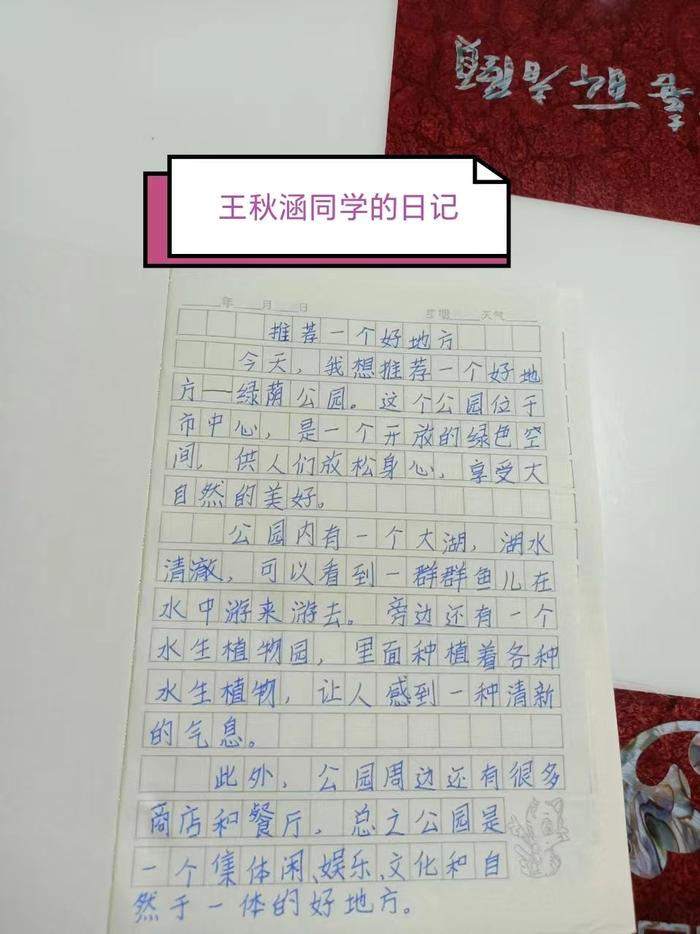 王秋涵同学的日记
年 月 日 星期 天气
推荐一个好地方
今天，我想推荐一个好地
方——绿荫公园。这个公园位于
市中心，是一个开放的绿色空
间，供人们放松身心，享受大
自然的美好。
公园内有一个大湖，湖水
清澈，可以看到一群群鱼儿在
水中游来游去。旁边还有一个
水生植物园，里面种植着各种
水生植物，让人感到一种清新
的气息。
此外，公园周边还有很多
商店和餐厅，总之公园是
一个集休闲、娱乐、文化和自
然于一体的好地方。